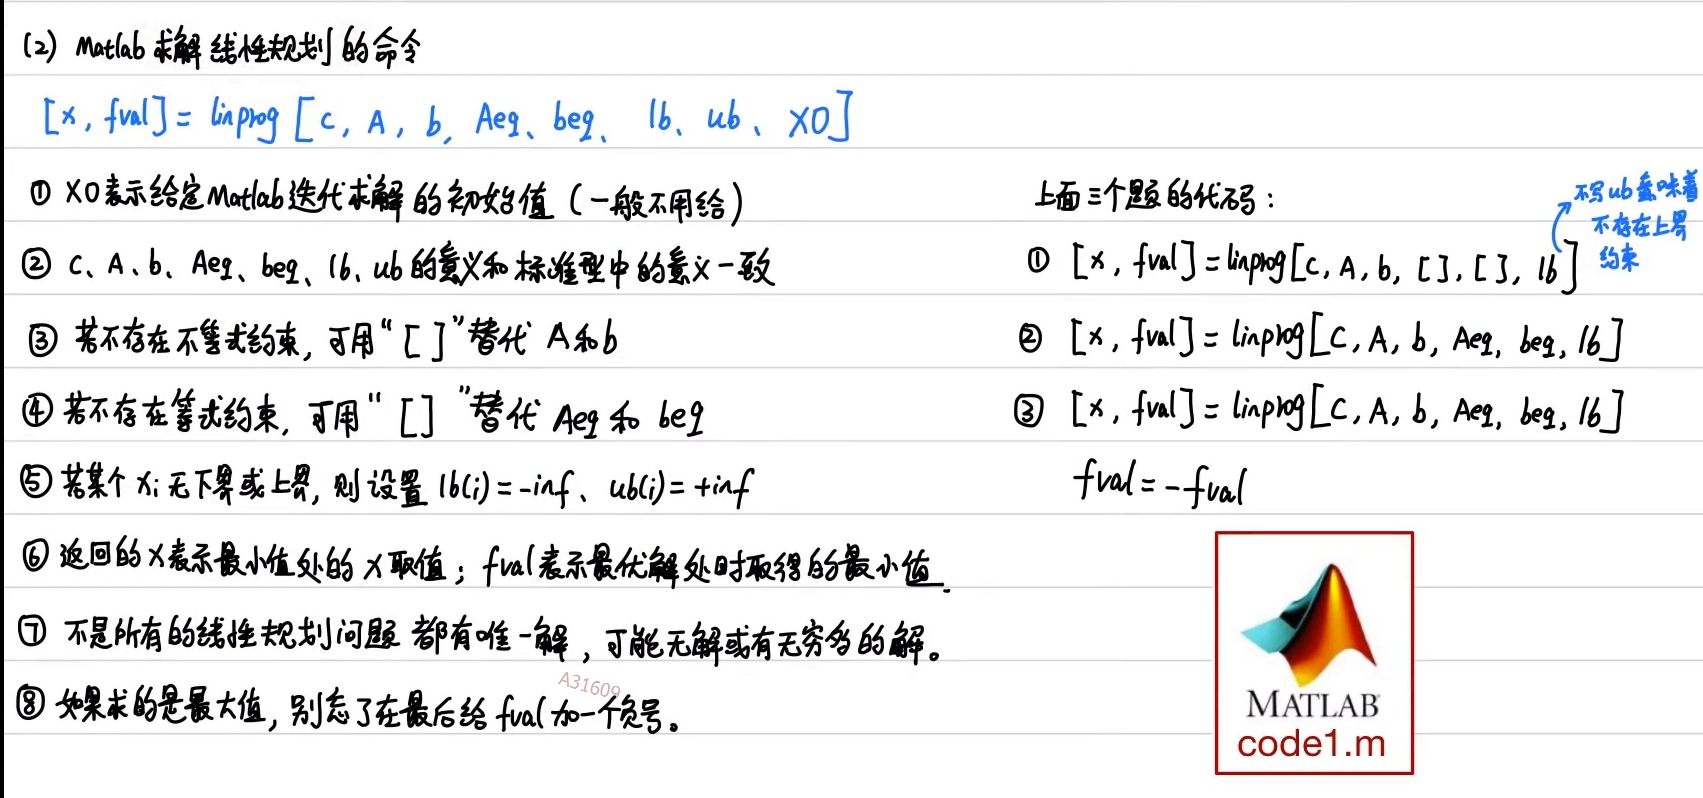 (2) Matlab 求解线性规划的命令
[x, fval] = linprog [c, A, b, Aeq、beq、 lb、ub、X0]
① X0表示给定Matlab迭代求解的初始值（一般不用给）
② c、A、b、Aeq、beq、lb、ub的意义和标准型中的意义一致
③ 若不存在不等式约束, 可用“[ ]”替代 A和b
④ 若不存在等式约束, 可用“[ ]”替代 Aeq 和 beq
⑤ 若某个 xi 无下界或上界, 则设置 lb(i) = -inf、ub(i) = +inf
⑥ 返回的x表示最小值处的x取值；fval表示最优解处时取得的最小值.
⑦ 不是所有的线性规划问题都有唯一解，可能无解或有无穷多的解。
⑧ 如果求的是最大值, 别忘了在最后给 fval 加一个负号。
A31609
上面三个题的代码：
不写ub意味着
不存在上界
约束
① [x, fval] = linprog[c, A, b, [ ], [ ], lb]
② [x, fval] = linprog[c, A, b, Aeq, beq, lb]
③ [x, fval] = linprog[c, A, b, Aeq, beq, lb]
fval = -fval
MATLAB
code1.m